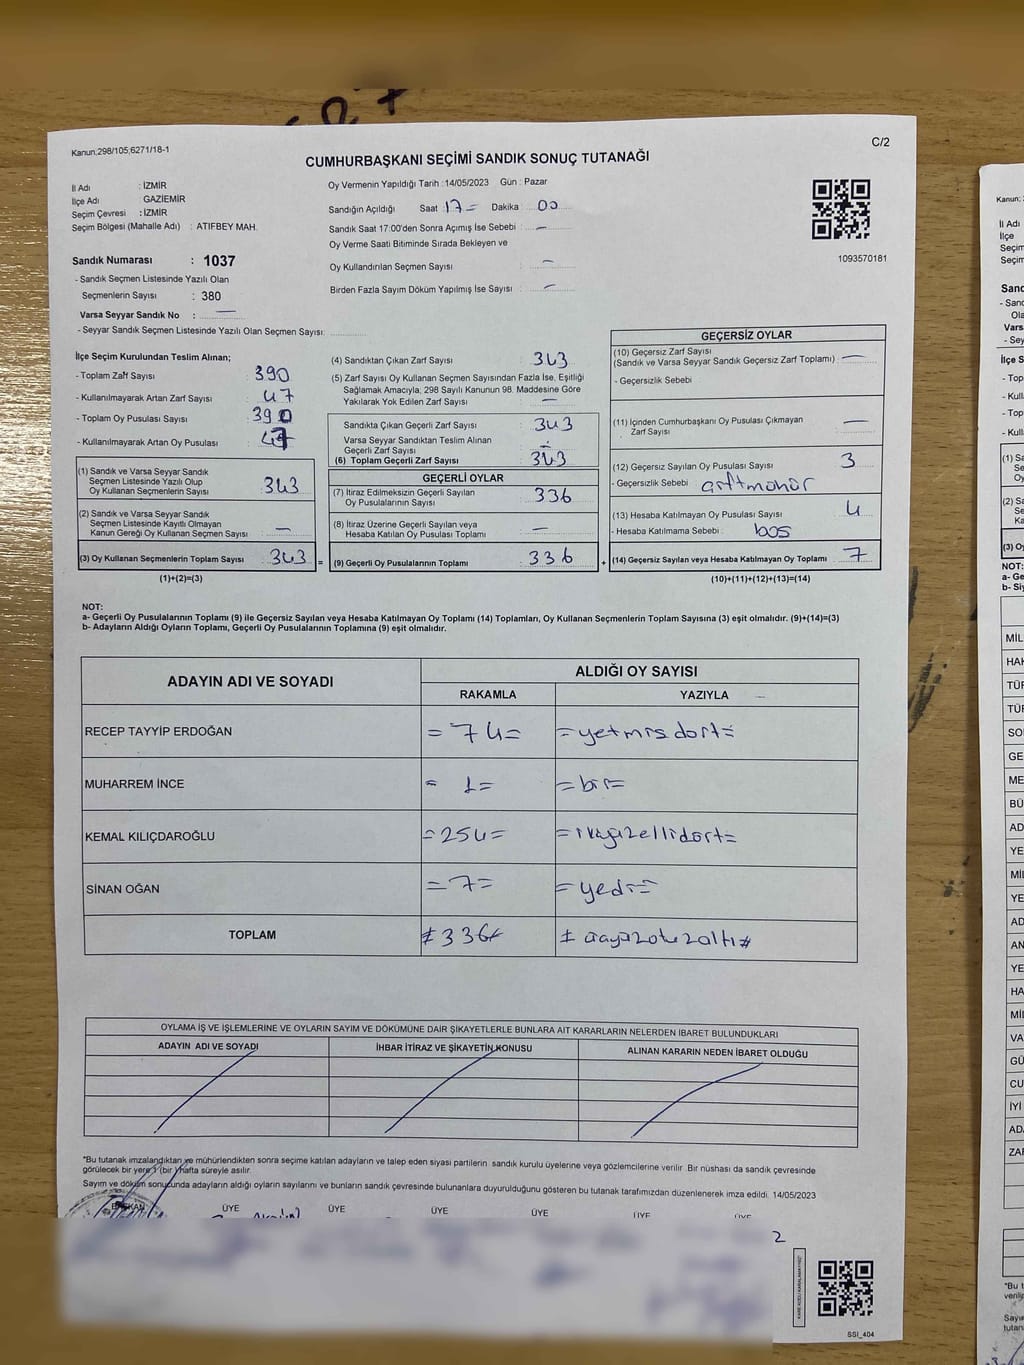 Kanun:298/105;6271/18-1
C/2
CUMHURBAŞKANI SEÇİMİ SANDIK SONUÇ TUTANAĞI
İl Adı : İZMİR
İlçe Adı GAZİEMİR
Seçim Çevresi : İZMİR
Seçim Bölgesi (Mahalle Adı) : ATIFBEY MAH.
Sandık Numarası : 1037
- Sandık Seçmen Listesinde Yazılı Olan
Seçmenlerin Sayısı : 380
Varsa Seyyar Sandık No : —
- Seyyar Sandık Seçmen Listesinde Yazılı Olan Seçmen Sayısı:
Oy Vermenin Yapıldığı Tarih : 14/05/2023 Gün : Pazar
Sandığın Açıldığı Saat 17 = Dakika 00
Sandık Saat 17:00'den Sonra Açımış İse Sebebi : —
Oy Verme Saati Bitiminde Sırada Bekleyen ve
Oy Kullandırılan Seçmen Sayısı : —
Birden Fazla Sayım Döküm Yapılmış İse Sayısı : —
1093570181
İlçe Seçim Kurulundan Teslim Alınan;
- Toplam Zarf Sayısı : 390
- Kullanılmayarak Artan Zarf Sayısı : 47
- Toplam Oy Pusulası Sayısı : 390
- Kullanılmayarak Artan Oy Pusulası : 47
(1) Sandık ve Varsa Seyyar Sandık
Seçmen Listesinde Yazılı Olup
Oy Kullanan Seçmenlerin Sayısı : 343
(2) Sandık ve Varsa Seyyar Sandık
Seçmen Listesinde Kayıtlı Olmayan
Kanun Gereği Oy Kullanan Seçmen Sayısı : —
(3) Oy Kullanan Seçmenlerin Toplam Sayısı : 343 =
(1)+(2)=(3)
(4) Sandıktan Çıkan Zarf Sayısı : 343
(5) Zarf Sayısı Oy Kullanan Seçmen Sayısından Fazla İse, Eşitliği
Sağlamak Amacıyla; 298 Sayılı Kanunun 98. Maddesine Göre
Yakılarak Yok Edilen Zarf Sayısı : —
Sandıkta Çıkan Geçerli Zarf Sayısı : 343
Varsa Seyyar Sandıktan Teslim Alınan
Geçerli Zarf Sayısı : —
(6) Toplam Geçerli Zarf Sayısı : 343
GEÇERLİ OYLAR
(7) İtiraz Edilmeksizin Geçerli Sayılan
Oy Pusulalarının Sayısı : 336
(8) İtiraz Üzerine Geçerli Sayılan veya
Hesaba Katılan Oy Pusulası Toplamı : —
(9) Geçerli Oy Pusulalarının Toplamı : 336 +
GEÇERSİZ OYLAR
(10) Geçersiz Zarf Sayısı
(Sandık ve Varsa Seyyar Sandık Geçersiz Zarf Toplamı) : —
- Geçersizlik Sebebi :
(11) İçinden Cumhurbaşkanı Oy Pusulası Çıkmayan
Zarf Sayısı : —
(12) Geçersiz Sayılan Oy Pusulası Sayısı : 3
- Geçersizlik Sebebi :
(13) Hesaba Katılmayan Oy Pusulası Sayısı : 4
- Hesaba Katılmama Sebebi : bos
(14) Geçersiz Sayılan veya Hesaba Katılmayan Oy Toplamı : 7
(10)+(11)+(12)+(13)=(14)
NOT:
a- Geçerli Oy Pusulalarının Toplamı (9) ile Geçersiz Sayılan veya Hesaba Katılmayan Oy Toplamı (14) Toplamları, Oy Kullanan Seçmenlerin Toplam Sayısına (3) eşit olmalıdır. (9)+(14)=(3)
b- Adayların Aldığı Oyların Toplamı, Geçerli Oy Pusulalarının Toplamına (9) eşit olmalıdır.
ADAYIN ADI VE SOYADI
ALDIĞI OY SAYISI
RAKAMLA YAZIYLA —
RECEP TAYYİP ERDOĞAN = 74 = = yetmisdort =
MUHARREM İNCE = 1 = = bir =
KEMAL KILIÇDAROĞLU = 254 = = ikiyüzellidort =
SİNAN OĞAN = 7 = = yedi =
TOPLAM ≠ 336 ≠
OYLAMA İŞ VE İŞLEMLERİNE VE OYLARIN SAYIM VE DÖKÜMÜNE DAİR ŞİKAYETLERLE BUNLARA AİT KARARLARIN NELERDEN İBARET BULUNDUKLARI
ADAYIN ADI VE SOYADI
İHBAR İTİRAZ VE ŞİKAYETİN KONUSU
ALINAN KARARIN NEDEN İBARET OLDUĞU
"Bu tutanak imzalandıktan ve mühürlendikten sonra seçime katılan adayların ve talep eden siyasi partilerin sandık kurulu üyelerine veya gözlemcilerine verilir. Bir nüshası da sandık çevresinde
görülecek bir yere 1 (bir) hafta süreyle asılır.
Sayım ve döküm sonucunda adayların aldığı oyların sayılarını ve bunların sandık çevresinde bulunanlara duyurulduğunu gösteren bu tutanak tarafımızdan düzenlenerek imza edildi. 14/05/2023
BAŞKAN ÜYE ÜYE ÜYE ÜYE ÜYE ÜYE
2
SSI_404
Kanun:
İl Adı
İlçe
Seçim
Seçim